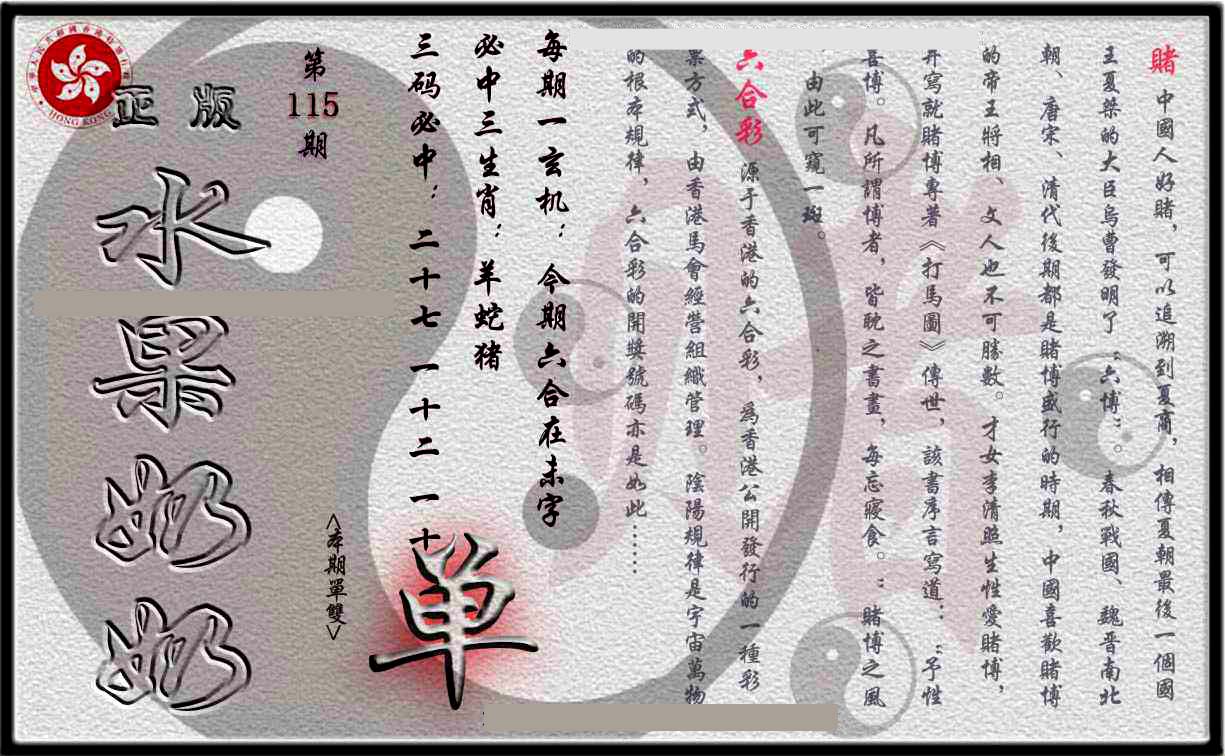 賭 中國人好賭，可以追溯到夏商，相傳夏朝最後一個國
王夏桀的大臣烏曹發明了“六博”。春秋戰國、魏晋南北
朝、唐宋、清代後期都是賭博盛行的時期，中國喜歡賭博
的帝王將相、文人也不可勝數。才女李清照生性愛賭博，
并寫就賭博專著《打馬圖》傳世，該書序言寫道：“予性
喜博。凡所謂博者，皆耽之書畫，每忘寢食。”賭博之風
由此可窺一斑。
六合彩 源于香港的六合彩，為香港公開發行的一種彩
票方式，由香港馬會經營組織管理。陰陽規律是宇宙萬物
的根本規律，六合彩的開獎號碼亦是如此……
每期一玄机：今期六合在未字
必中三生肖：羊蛇猪
三码必中：二十七 一十二 一十
第
115
期
<本期單雙>
单
正版
水果奶奶
HONG KONG